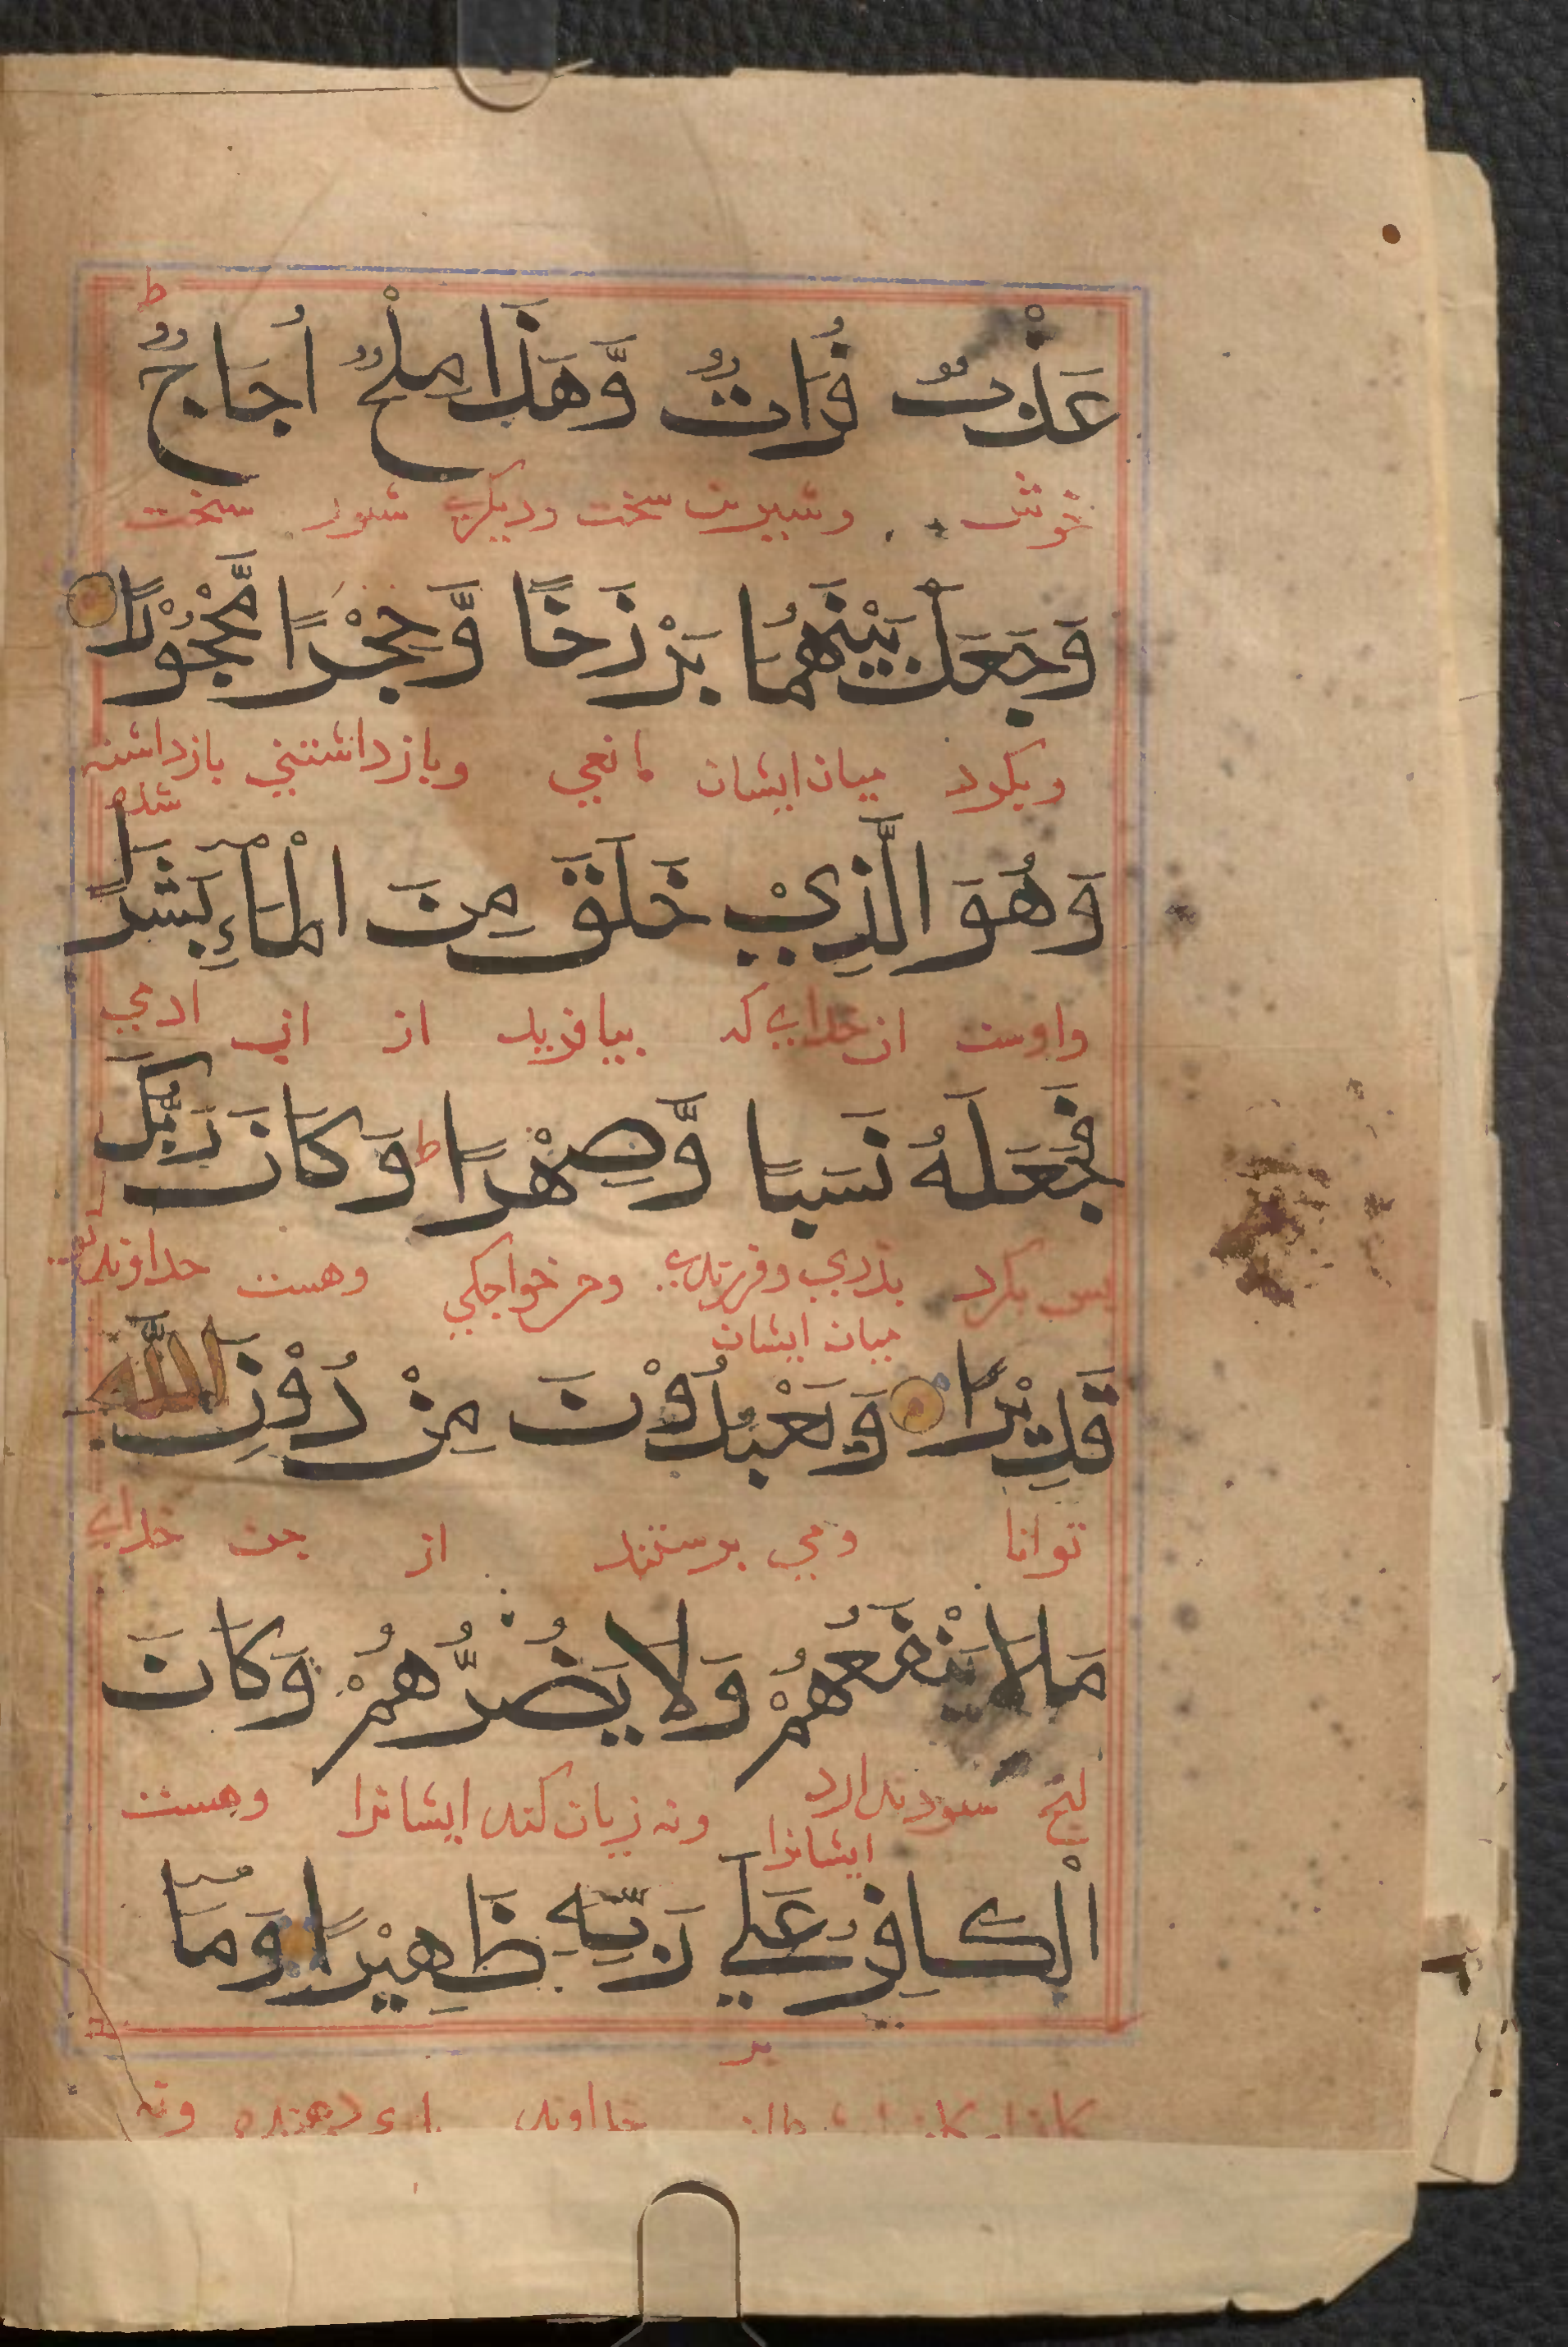 ط
عَذْبٌ فُرَاتٌ وَّهَذَا مِلْحٌ أُجَاجٌ
خوش وشیرین سخت ودیکری شور سخت
وَجَعَلَ بَيْنَهُمَا بَرْزَخًا وَّحِجْرًا مَّحْجُوْرًا
وبکرد میان ایشان مانعي وبازداشتني بازداشته
شده
وَهُوَ الَّذِيْ خَلَقَ مِنَ الْمَآءِ بَشَرًا
واوست ان خدای که بیافرید از اب ادمي
فَجَعَلَهُ نَسَبًا وَّصِهْرًا ط وَكَانَ رَبُّكَ
بس بکرد بذري وفرزندی وخواجکي وهست خداوند تو
میان ایشان
قَدِيْرًا وَيَعْبُدُوْنَ مِنْ دُوْنِ اللّٰهِ
توانا ومي برستند از جن خدای
مَا لَا يَنْفَعُهُمْ وَلَا يَضُرُّهُمْ وَكَانَ
انچ سود ندارد ونه زیان کند ایشانرا وهست
ایشانرا
الْكَافِرُ عَلَي رَبِّهِ ظَهِيْرًا وَمَآ
بر
خداوند دهنده ونه